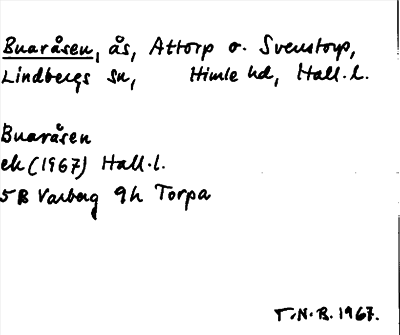 Buaråsen, ås, Attorp o. Svenstorp,
Lindbergs sn, Himle hd, Hall. l.
Buaråsen
ek (1967) Hall. l.
5B Varberg 9h Torpa
T.N.B. 1967.